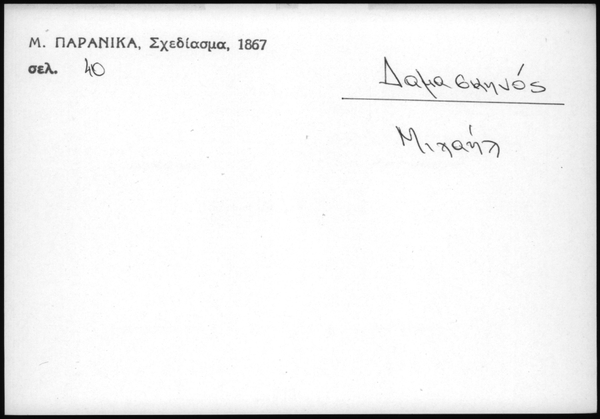 Μ. ΠΑΡΑΝΙΚΑ, Σχεδίασμα, 1867
σελ. 40
Δαμασκηνός
Μιχαήλ